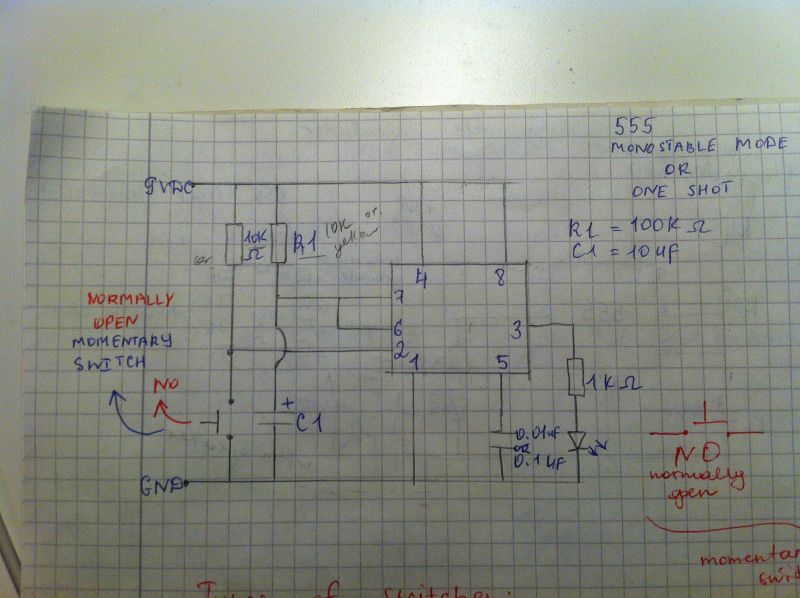 555
MONOSTABLE MODE
OR
ONE SHOT
R1 = 100K Ω
C1 = 10 uf
9VDC
10K
Ω
R1
10K or
yellow
4
8
7
6
2
3
1
5
NORMALLY
OPEN
MOMENTARY
SWITCH
NO
+
C1
1K Ω
0.01uF
OR
0.1uF
GND
NO
normally
open
momentar
swit
Types of switches: